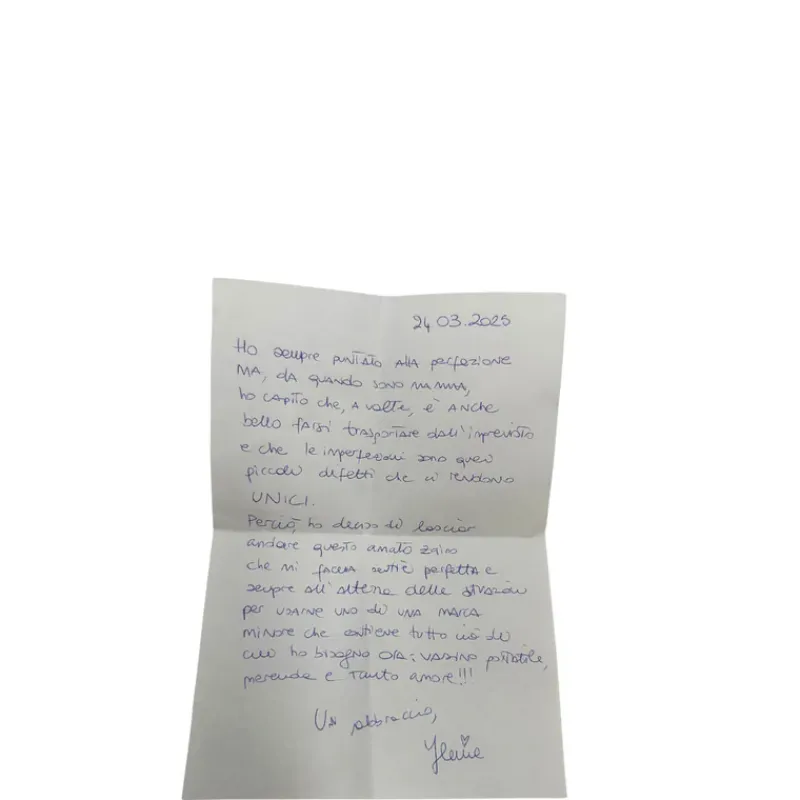 24 03.2025
Ho sempre puntato alla perfezione
MA, da quando sono mamma,
ho capito che, a volte, è anche
bello farsi trasportare dall'imprevisto
e che le imperfezioni sono quei
piccoli difetti che ci rendono
UNICI.
Perciò, ho deciso di lasciar
andare questo amato zaino
che mi faceva sentire perfetta e
sempre all'altezza delle situazioni
per usarne uno di una marca
minore che contiene tutto ciò di
cui ho bisogno ora: vasino portatile,
merenda e tanto amore!!!
Un abbraccio,